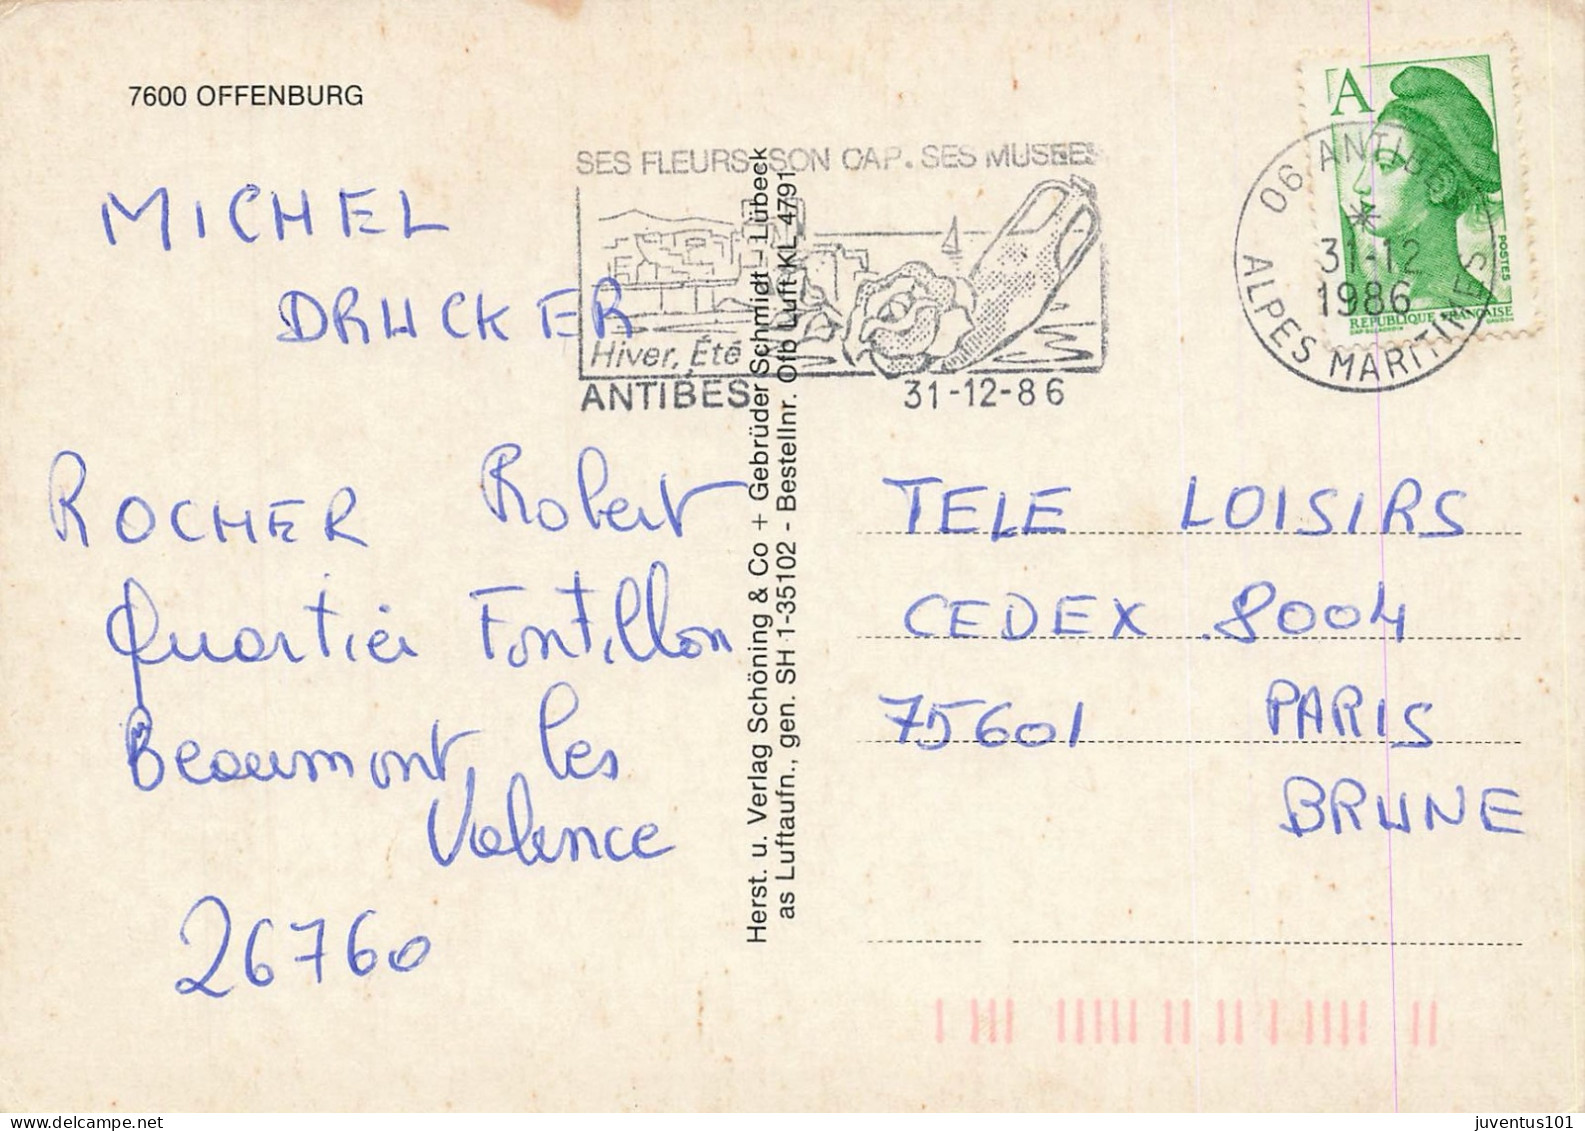 7600 OFFENBURG
SES FLEURS. SON CAP. SES MUSEES
Hiver, Été
ANTIBES
31-12-86
A
POSTES
REPUBLIQUE FRANÇAISE
06 ANTIBES
31-12
1986
ALPES MARITIMES
MICHEL
DRUCKER
ROCHER Robert
Quartier Fontillon
Beaumont les
Valence
26760
Herst. u. Verlag Schöning & Co + Gebrüder Schmidt - Lübeck
as Luftaufn., gen. SH 1-35102 - Bestellnr. Ofb Luft KL 4791
TELE LOISIRS
CEDEX 8004
75601 PARIS
BRUNE
juventus101